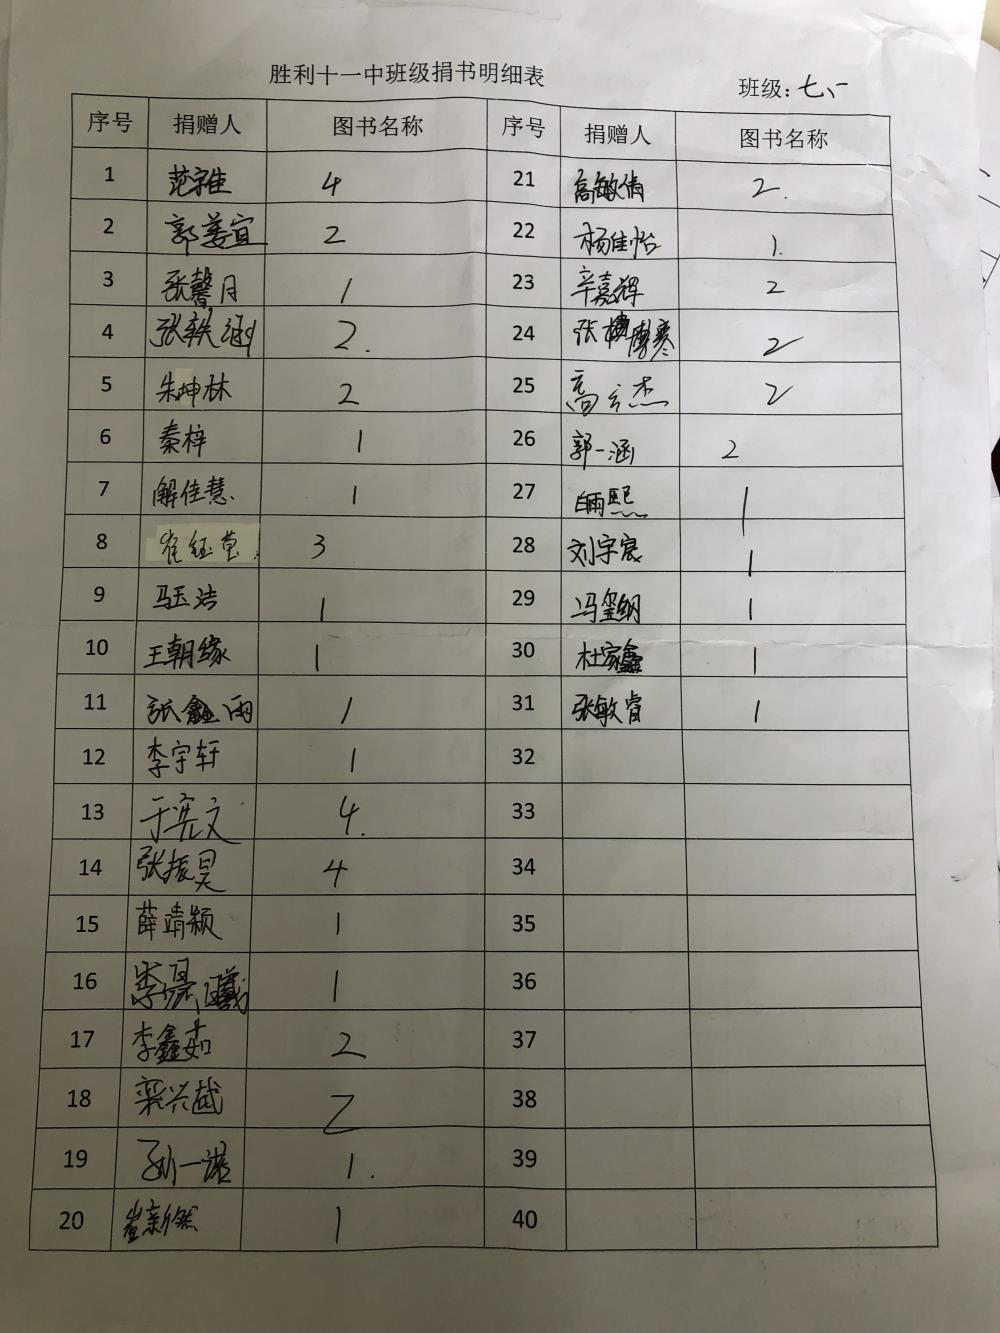 胜利十一中班级捐书明细表 班级：七、一
序号 捐赠人 图书名称 序号 捐赠人 图书名称
1 范宇佳 4 21 高敏倩 2.
2 郭姜宜 2 22 杨佳怡 1.
3 张馨月 1 23 辛嘉辉 2
4 张轶涵 2. 24 张 2
5 朱坤林 2 25 高立杰 2
6 秦梓 1 26 郭一涵 2
7 解佳慧 1 27 熙 1
8 崔钰莹 3 28 刘宇宸 1
9 马玉浩 1 29 冯玺纲 1
10 王朝缘 1 30 杜家鑫 1
11 张鑫雨 1 31 张敏睿 1
12 李宇轩 1 32
13 于亮文 4. 33
14 张振昊 4 34
15 薛靖颖 1 35
16 李 曦 1 36
17 李鑫茹 2 37
18 梁兴武 2 38
19 孙一诺 1. 39
20 崔新然 1 40